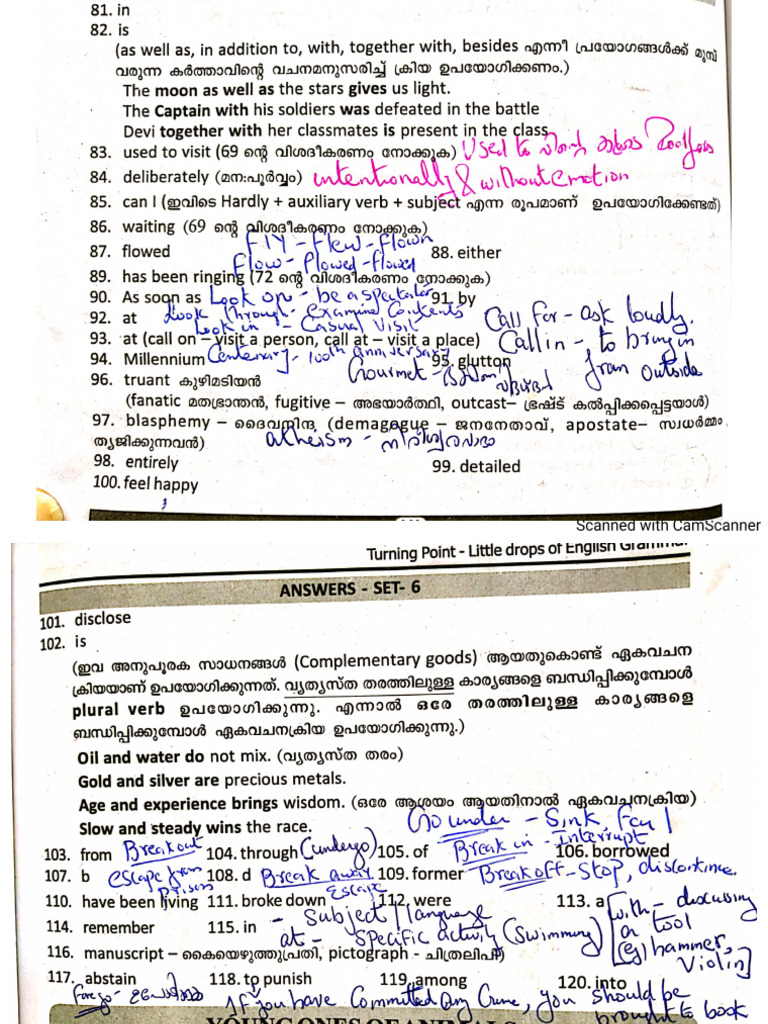 81. in
82. is
(as well as, in addition to, with, together with, besides എന്നീ പ്രയോഗങ്ങൾക്ക് മുമ്പ്
വരുന്ന കർത്താവിന്റെ വചനമനുസരിച്ച് ക്രിയ ഉപയോഗിക്കണം.)
The moon as well as the stars gives us light.
The Captain with his soldiers was defeated in the battle
Devi together with her classmates is present in the class
83. used to visit (69 ന്റെ വിശദീകരണം നോക്കുക) Used to
84. deliberately (മനഃപൂർവ്വം) intentionally & without emotion
85. can I (ഇവിടെ Hardly + auxiliary verb + subject എന്ന രൂപമാണ് ഉപയോഗിക്കേണ്ടത്)
86. waiting (69 ന്റെ വിശദീകരണം നോക്കുക)
Fly - Flew - flown
87. flowed 88. either
Flow - flowed - flowed
89. has been ringing (72 ന്റെ വിശദീകരണം നോക്കുക)
90. As soon as Look on - be a spectator 91. by
92. at Look through - examine contents Call for - ask loudly.
Look in - Casual Visit
93. at (call on – visit a person, call at – visit a place) Call in - to bring in from outside
94. Millennium Centenary - 100th anniversary 95. glutton
Gourmet -
96. truant കുഴിമടിയൻ
(fanatic മതഭ്രാന്തൻ, fugitive – അഭയാർത്ഥി, outcast– ഭ്രഷ്ട് കൽപ്പിക്കപ്പെട്ടയാൾ)
97. blasphemy – ദൈവനിന്ദ, (demagogue – ജനനേതാവ്, apostate– സ്വധർമ്മം
ത്യജിക്കുന്നവൻ) atheism - നിരീശ്വരവാദം
98. entirely 99. detailed
100. feel happy
Scanned with CamScanner
Turning Point - Little drops of English Grammar
ANSWERS - SET- 6
101. disclose
102. is
(ഇവ അനുപൂരക സാധനങ്ങൾ (Complementary goods) ആയതുകൊണ്ട് ഏകവചന
ക്രിയയാണ് ഉപയോഗിക്കുന്നത്. വ്യത്യസ്ത തരത്തിലുള്ള കാര്യങ്ങളെ ബന്ധിപ്പിക്കുമ്പോൾ
plural verb ഉപയോഗിക്കുന്നു. എന്നാൽ ഒരേ തരത്തിലുള്ള കാര്യങ്ങളെ
ബന്ധിപ്പിക്കുമ്പോൾ ഏകവചനക്രിയ ഉപയോഗിക്കുന്നു.)
Oil and water do not mix. (വ്യത്യസ്ത തരം)
Gold and silver are precious metals.
Age and experience brings wisdom. (ഒരേ ആശയം ആയതിനാൽ ഏകവചനക്രിയ)
Slow and steady wins the race. Go under - Sink, Fail
103. from Breakout 104. through (undergo) 105. of Break in - interrupt 106. borrowed
107. b escape from prison 108. d Break away Escape 109. former Break off - Stop, discontinue.
110. have been living 111. broke down 112. were 113. a
114. remember 115. in - subject / language
at - specific activity (swimming)
[with - discussing a tool (eg) hammer, violin]
116. manuscript – കൈയെഴുത്തുപ്രതി, pictograph - ചിത്രലിപി
117. abstain 118. to punish 119. among 120. into
forego - If you have committed any crime, you should be brought to book
YOUNG ONES OF ANIMALS